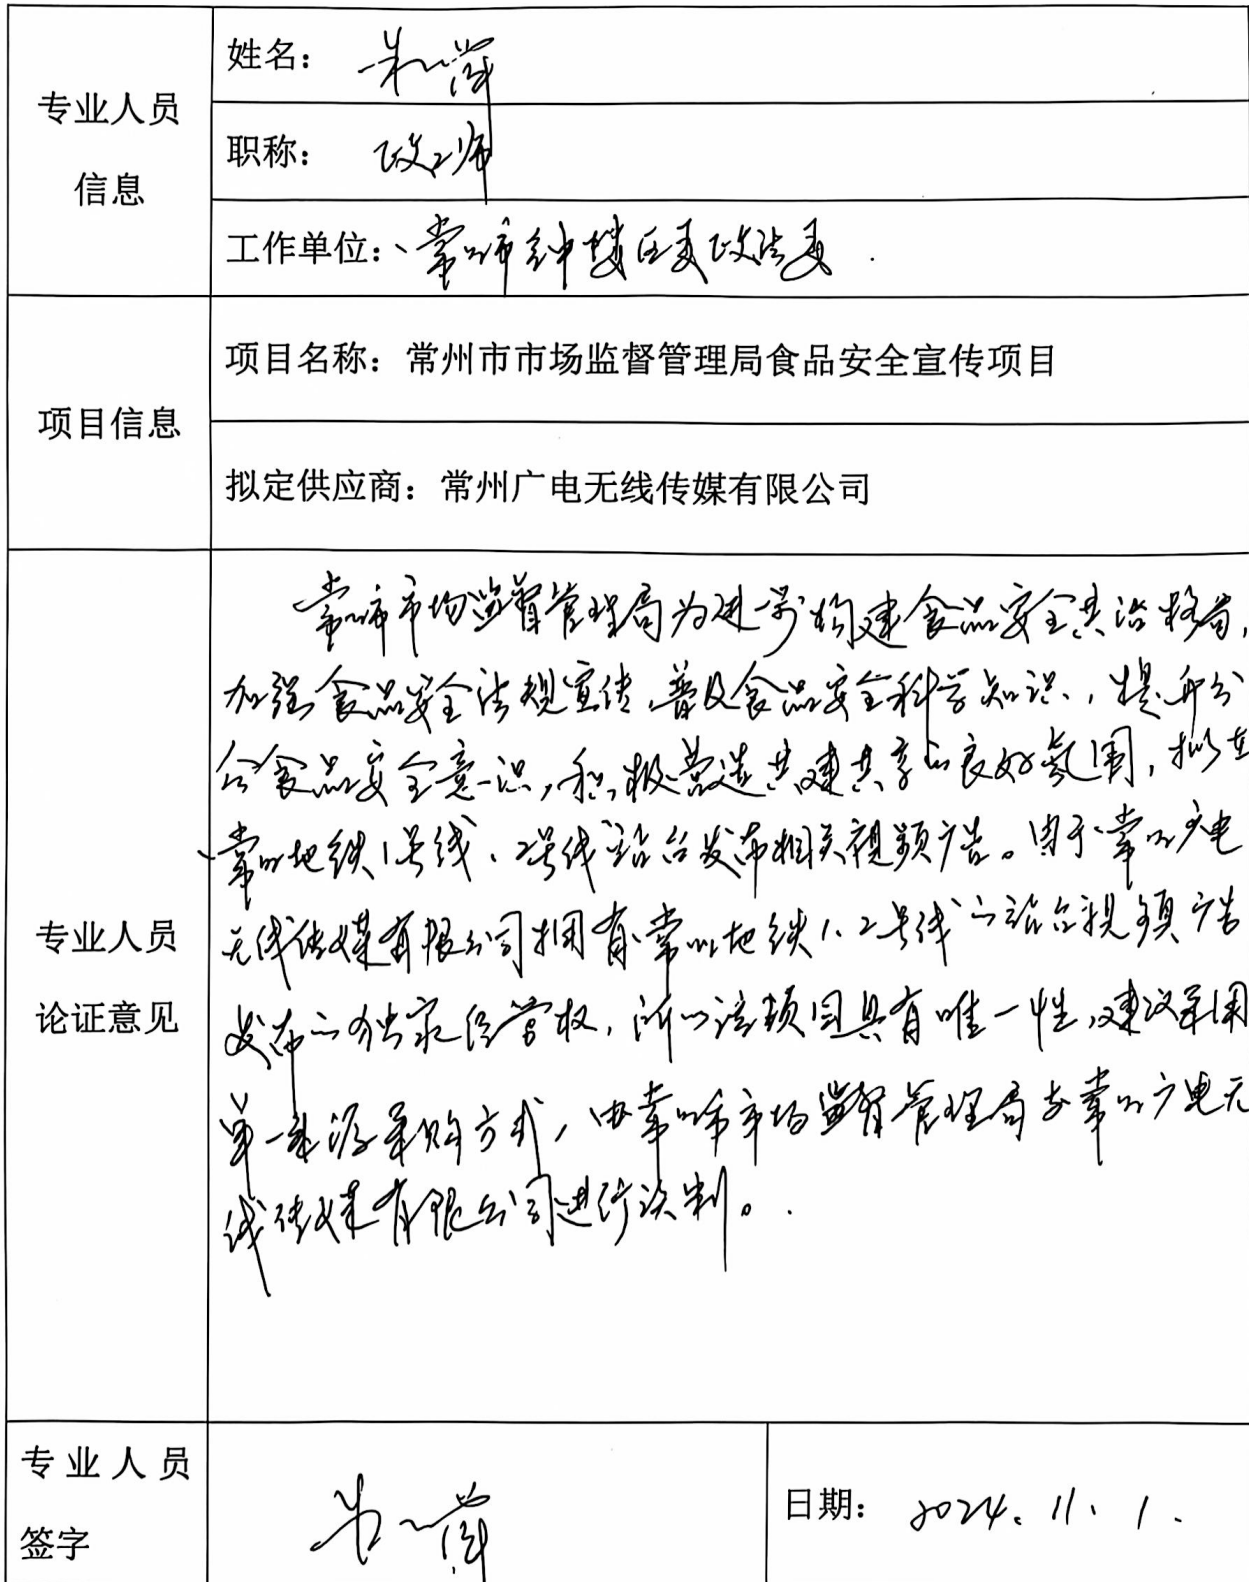 专业人员
信息
姓名：朱一萍
职称：政工师
工作单位：常州市钟楼区委政法委
项目信息
项目名称：常州市市场监督管理局食品安全宣传项目
拟定供应商：常州广电无线传媒有限公司
专业人员
论证意见
常州市市场监督管理局为进一步构建食品安全共治格局，
加强食品安全法规宣传，普及食品安全科学知识，提升公
众食品安全意识，积极营造共建共享的良好氛围，拟在
常州地铁1号线、2号线站台发布相关视频广告。由于常州广电
无线传媒有限公司拥有常州地铁1、2号线的站台视频广告
发布的独家经营权，所以该项目具有唯一性，建议采用
单一来源采购方式，由常州市市场监督管理局与常州广电无
线传媒有限公司进行谈判。
专业人员
签字
朱一萍
日期：2024.11.1.